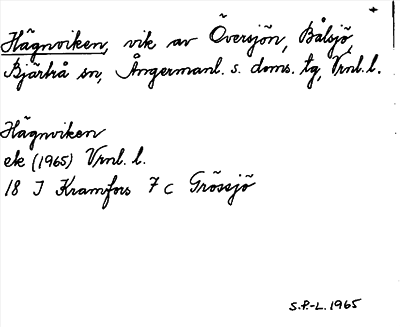 Hägnviken, vik av Översjön, Bålsjö,
Bjärtrå sn, Ångermanl. s. doms. tg, Vrnl. l.
Hägnviken
ek (1965) Vrnl. l.
18 J Kramfors 7 c Grössjö
S.P.-L. 1965